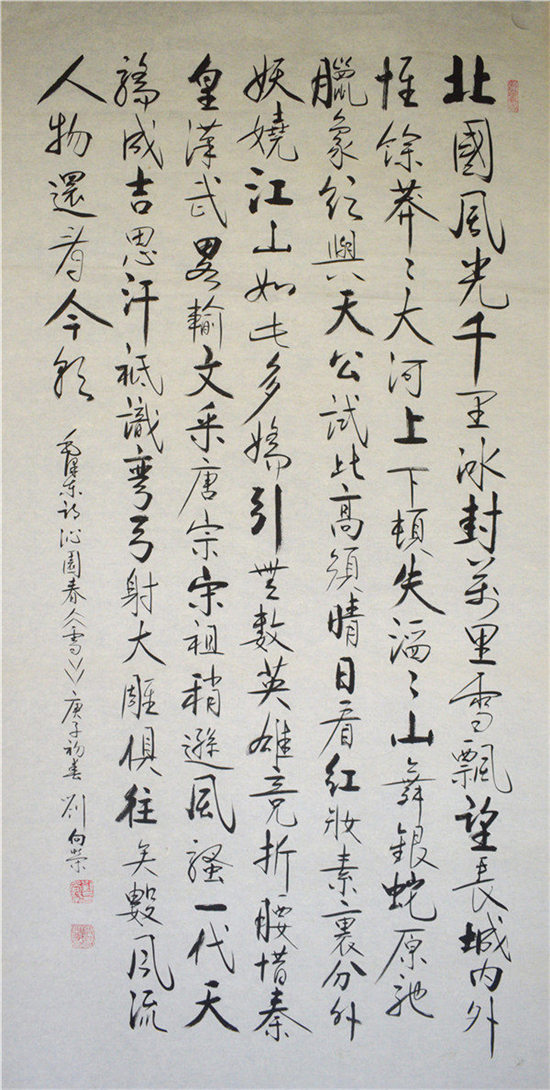 北國风光千里冰封萬里雪飄望長城内外
惟餘莽々大河上下頓失滔々山舞銀蛇原馳
臘象欲與天公試比高須晴日看紅妝素裹分外
妖嬈江山如此多嬌引無數英雄竞折腰惜秦
皇漢武畧輸文采唐宗宋祖稍遜风騷一代天
驕成吉思汗祗識彎弓射大雕俱往矣數风流
人物還看今朝
毛澤东詞沁園春《雪》庚子初春 劉向榮